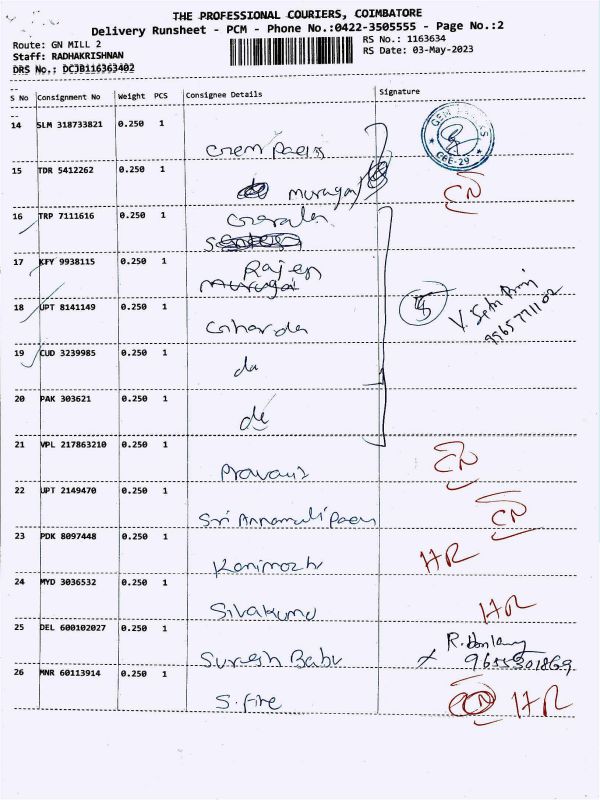 THE PROFESSIONAL COURIERS, COIMBATORE
Delivery Runsheet - PCM - Phone No.:0422-3505555 - Page No.:2
Route: GN MILL 2
RS No.: 1163634
Staff: RADHAKRISHNAN
RS Date: 03-May-2023
DRS No.: DCJB116363402
S No Consignment No Weight PCS Consignee Details Signature
14 SLM 318733821 0.250 1
Gem Paints
15 TDR 5412262 0.250 1
murugan CN
16 TRP 7111616 0.250 1
17 KFY 9938115 0.250 1
Rajen
murugan
18 UPT 8141149 0.250 1
Gharda
19 CUD 3239985 0.250 1
do
20 PAK 303621 0.250 1
do
21 VPL 217863210 0.250 1
CN
22 UPT 2149470 0.250 1
Sri CN
23 PDK 8097448 0.250 1
Kanimozhi HR
24 MYD 3036532 0.250 1
Sivakumar HR
25 DEL 600102027 0.250 1
Suresh Babu 9655301869
26 MNR 60113914 0.250 1
S. Fire CN HR